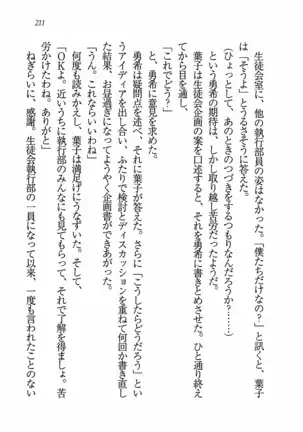 211
生徒会室に、他の執行部員の姿はなかった。「僕たちだけなの？」と訊くと、葉子
は「そうよ」とうるさそうに答えた。
（ひょっとして、あのときのつづきをするつもりなんだろうか？……）
という勇希の期待は、しかし取り越し苦労だったらしい。
葉子は生徒会企画の案を口述すると、それを勇希に書きとめさせた。ひと通り終え
てから目を通し、
「これでどう？」
と、勇希に意見を求めた。
勇希は疑問点を述べ、それに葉子が答えた。さらに「こうしたらどうだろう」とい
うアイディアを出し合い、ふたりで検討とディスカッションを重ねて何回か書き直し
た結果、お昼過ぎになってようやく企画書ができあがった。
「うん。これならいいわね」
何度も読みかえし、葉子は満足げにうなずいた。そして、
「ＯＫよ。近いうちに執行部のみんなにも見てもらって、それで了解を得ましょ。苦
労かけたわね。ありがと」
ねぎらいに、感謝。生徒会執行部の一員になって以来、一度も言われたことのない